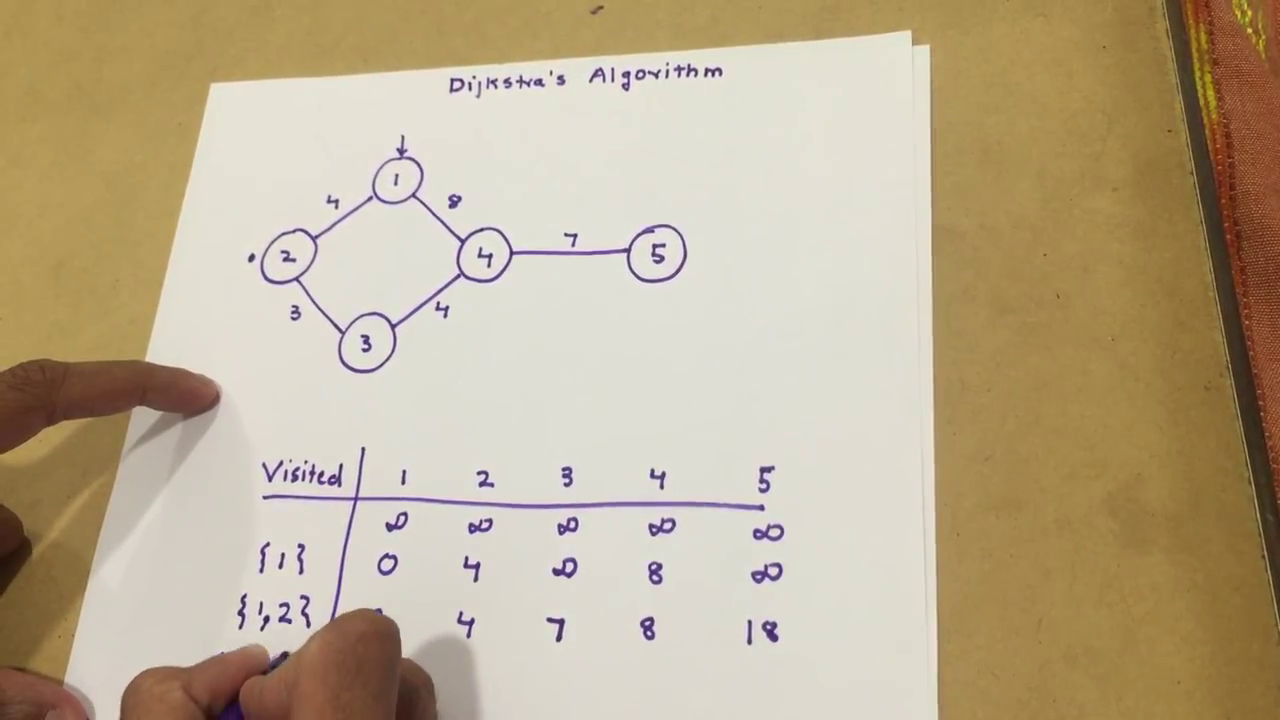 Dijkstra's Algorithm
1
4 8
2 4 7 5
3 4
3
Visited 1 2 3 4 5
∞ ∞ ∞ ∞ ∞
{1} 0 4 ∞ 8 ∞
{1,2} 4 7 8 18